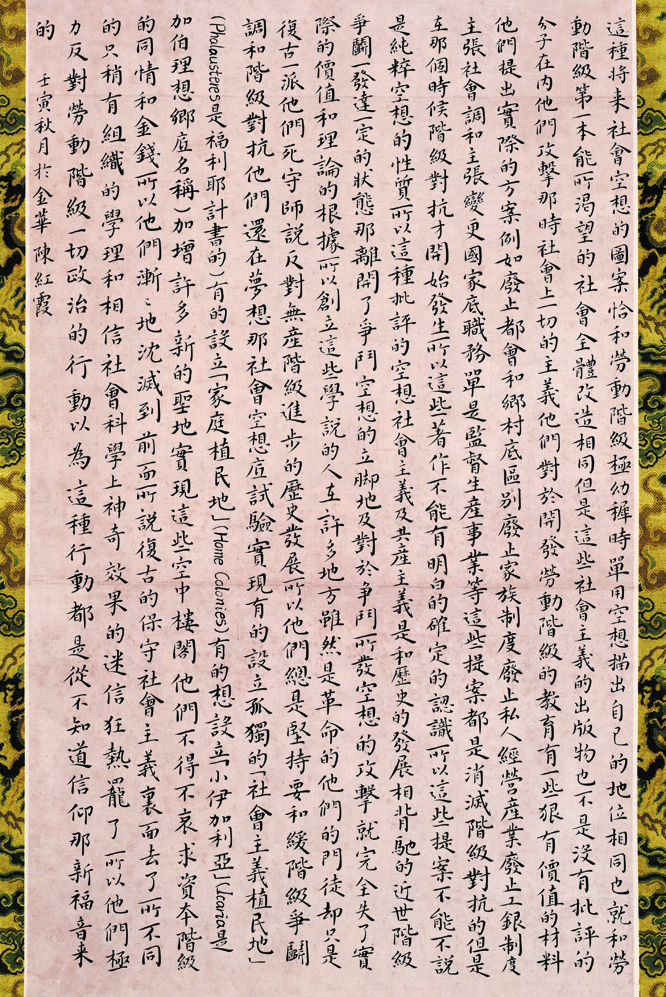 這種将来社會空想的圖案恰和勞動階級極幼穉時單用空想描出自己的地位相同也就和勞
動階級第一本能所渴望的社會全體改造相同但是這些社會主義的出版物也不是没有批評的
分子在内他們攻擊那時社會上一切的主義他們對於開發勞動階級的教育有一些狠有價值的材料
他們提出實際的方案例如廢止都會和鄉村底區别廢止家族制度廢止私人經營産業廢止工銀制度
主張社會調和主張變更國家底職務單是監督生産事業等這些提案都是消滅階級對抗的但是
在那個時候階級對抗才開始發生所以這些著作不能有明白的確定的認識所以這些提案不能不說
是純粹空想的性質所以這種批評的空想社會主義及共産主義是和歷史的發展相背馳的近世階級
爭鬭一發達一定的狀態那離開了爭鬥空想的立脚地及對於爭鬥所發空想的攻擊就完全失了實
際的價值和理論的根據所以創立這些學説的人在許多地方雖然是革命的他們的門徒却只是
復古一派他們死守師説反對無産階級進步的歷史發展所以他們總是堅持要和緩階級爭鬭
調和階級對抗他們還在夢想那社會空想底試驗實現有的設立孤獨的「社會主義植民地」
(Phalausteres是福利耶計書的)有的設立「家庭植民地」(Home Colonies)有的想設立「小伊加利亞」(Icaria是
加伯理想鄉底名稱)加增許多新的聖地實現這些空中樓閣他們不得不哀求資本階級
的同情和金錢所以他們漸〻地沈滅到前面所說復古的保守社會主義裏面去了所不同
的只稍有組織的學理和相信社會科學上神奇效果的迷信狂熱罷了所以他們極
力反對勞動階級一切政治的行動以為這種行動都是從不知道信仰那新福音来
的 壬寅秋月於金華 陳紅霞